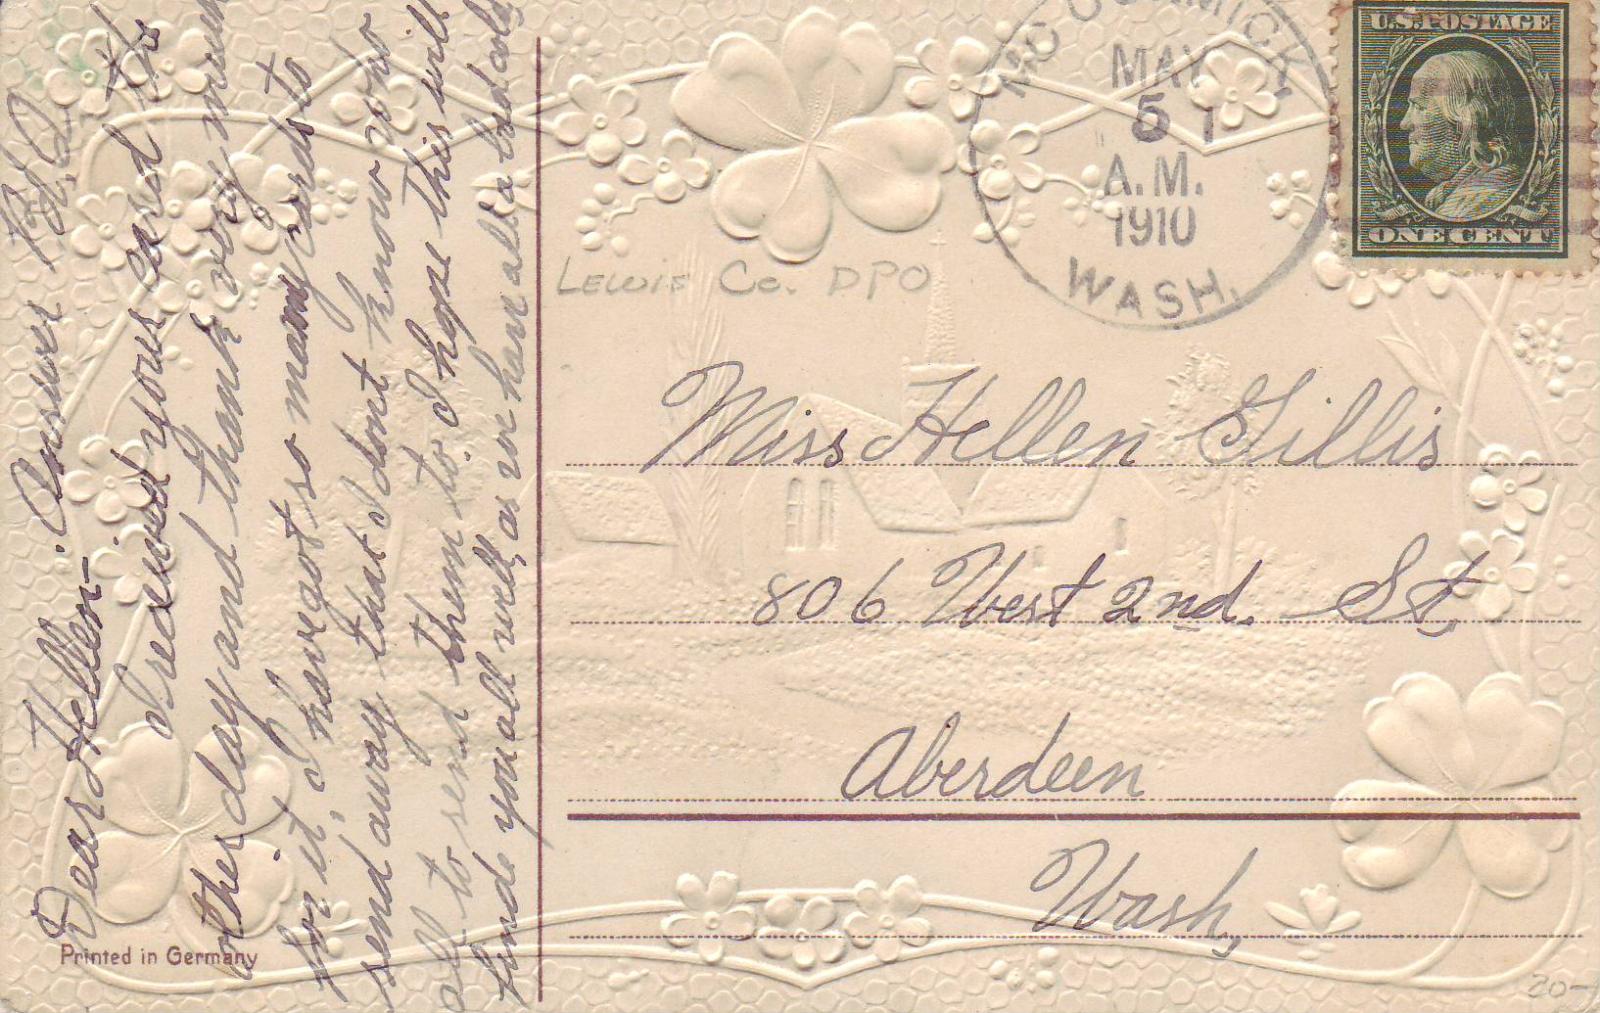 Dear Hellen- Answer
I received your card the
other day and thank very much
for it, I have got so many cards to
send away that I dont know who
all to send them to. I hope this will
find you all well, as we have all a bad cold
Printed in Germany
MAY
5 1
A.M.
1910
WASH.
U.S. POSTAGE
ONE CENT
LEWIS Co. DPO
Miss Hellen Gillis
806 West 2nd. St,
Aberdeen
Wash,
20-